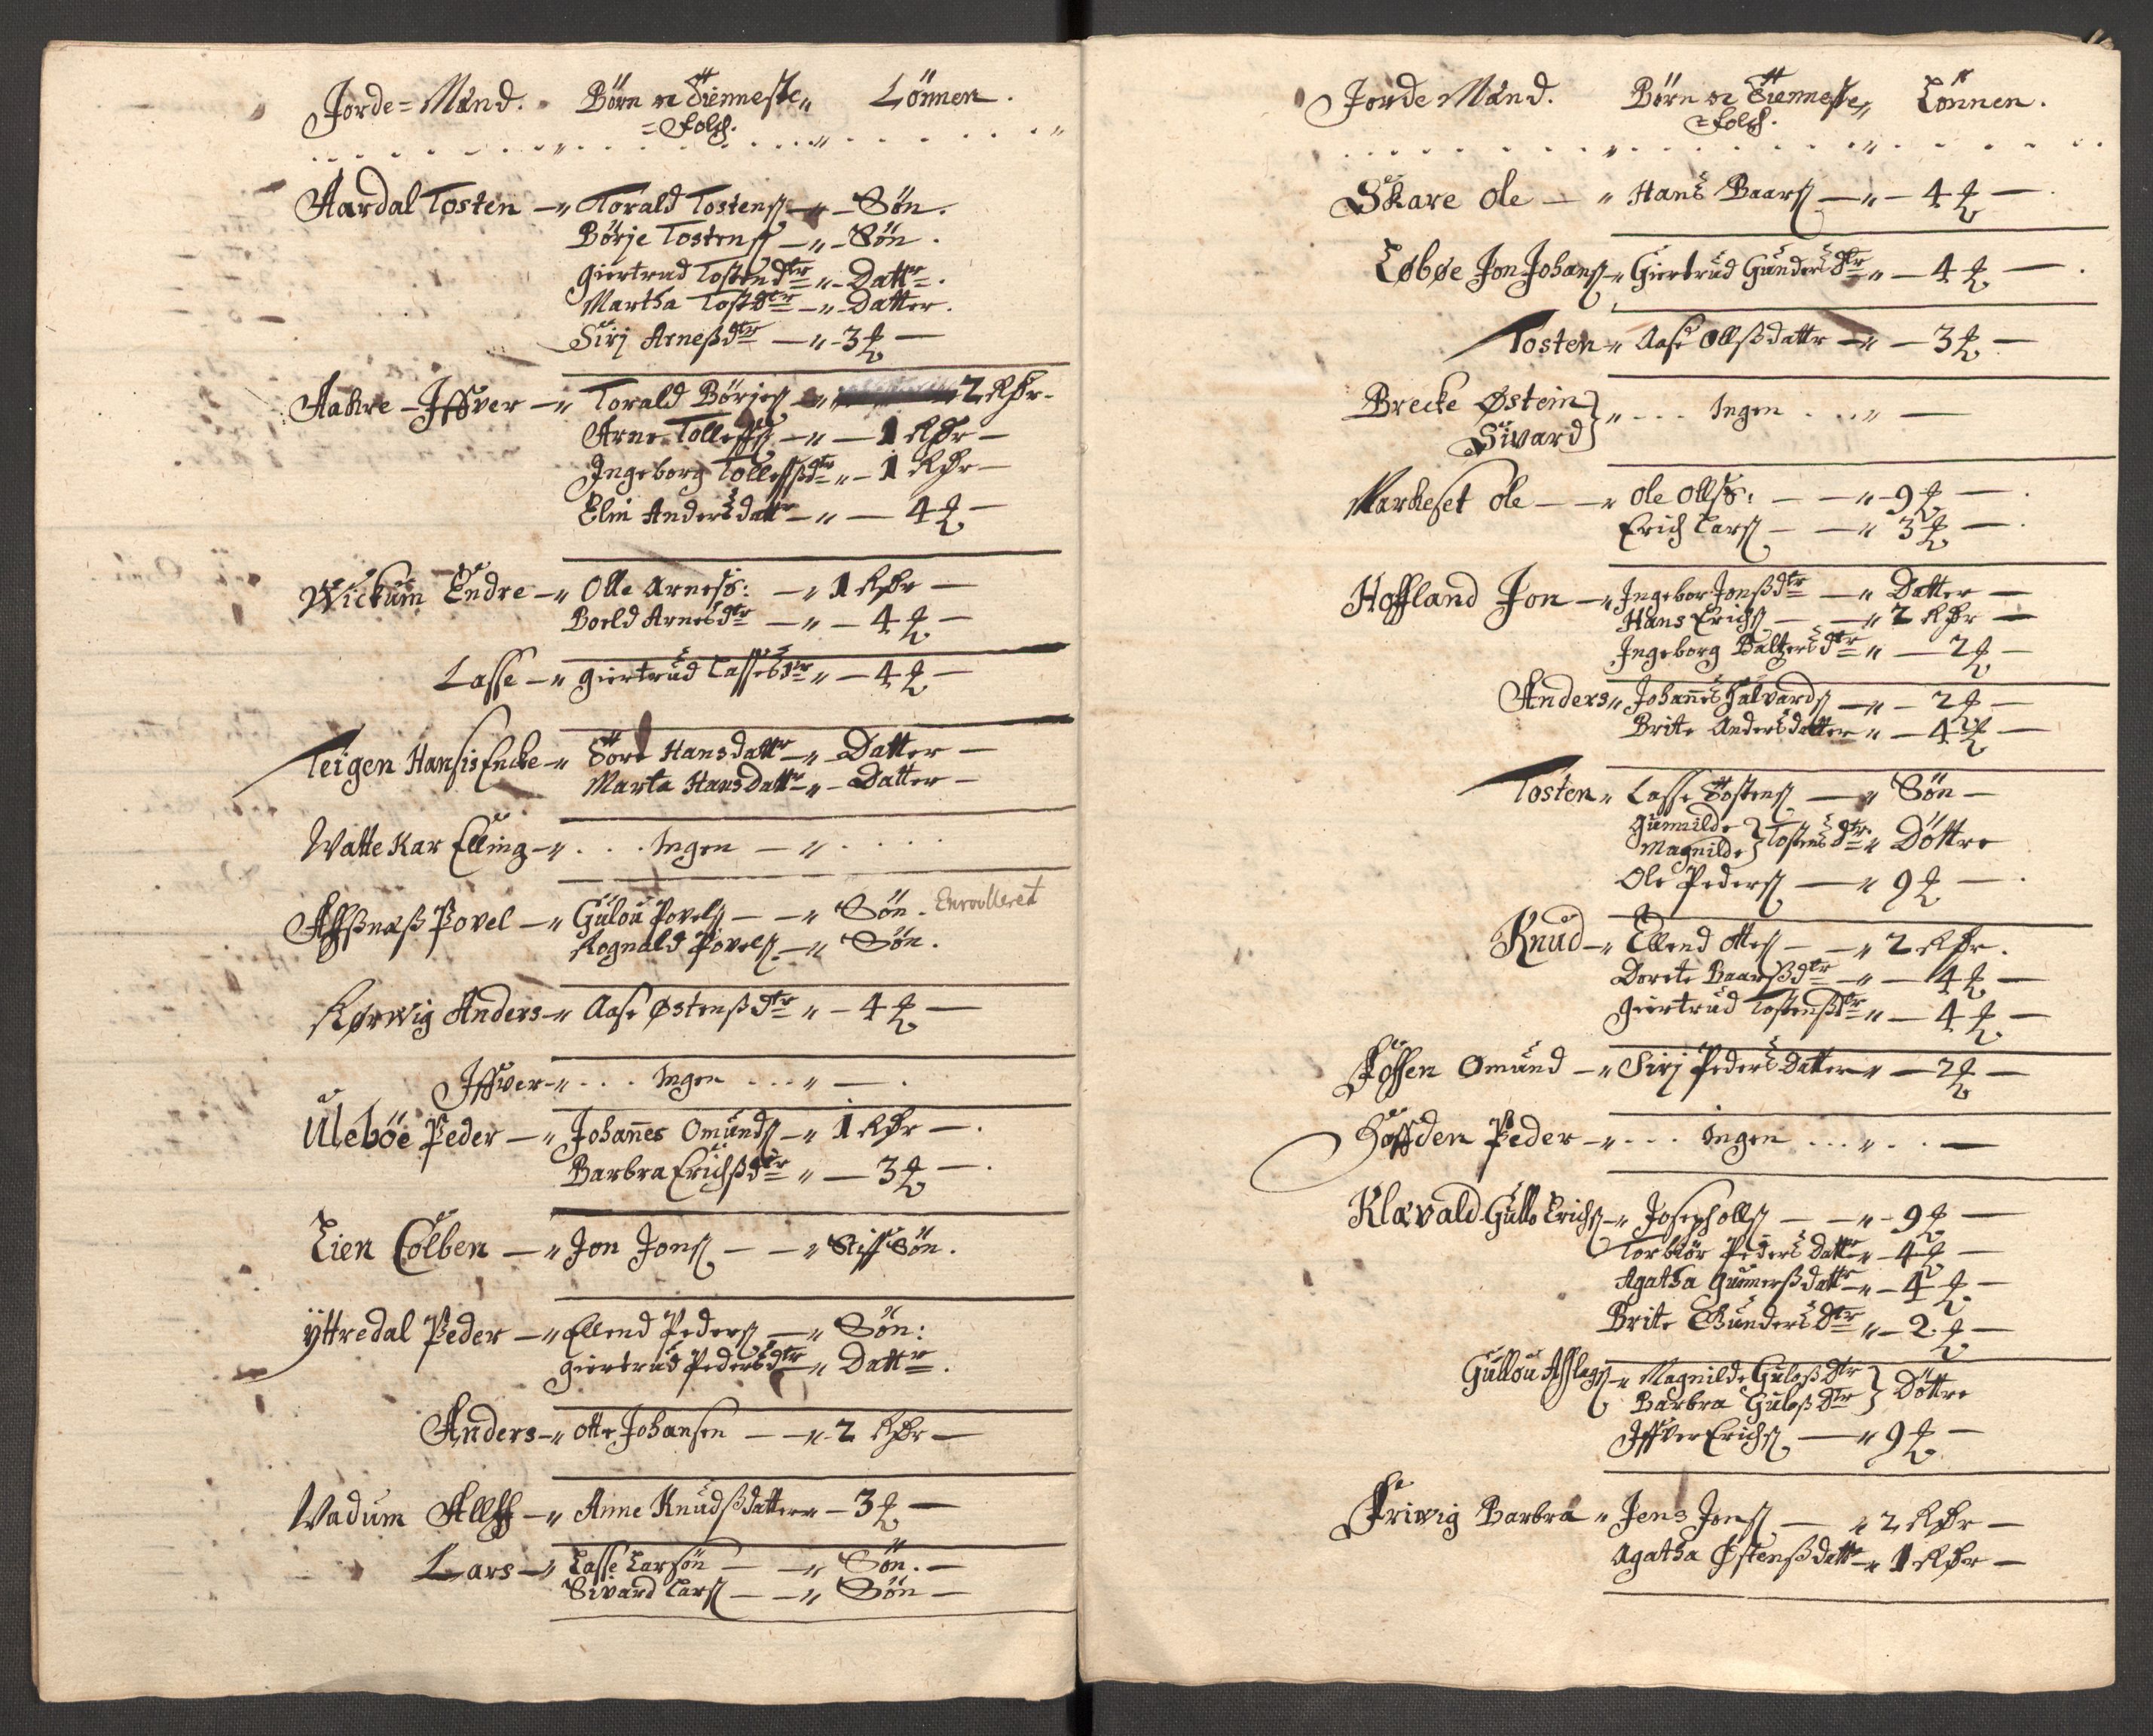 Jorde=Mænd. Börn oc Tienneste Lönnen.
=Folch.
Aardal Tosten — Torald Tostenß — Sön.
Börje Tostenß — Sön.
Giertrud Tostensdtr — Dattr.
Martha Tostdtr — Datter.
Sirj Arneßdtr — 3 ₰ —
Aakre Iffver — Torald Börjeß — 2 Rdr.
Arne Tolleffß — 1 Rdr —
Ingeborg Tolleffßdtr — 1 Rdr —
Elin Andersdattr — 4 ₰ —
Wickum Endre — Olle Arneß: — 1 Rdr —
Boeld Arnesdtr — 4 ₰ —
Lasse — Giertrud Lassesdtr — 4 ₰ —
Teigen Hansis Encke — Söre Hansdattr — Datter —
Marta Hansdattr — Datter —
Wattekar Elling — . . . Ingen — . . . .
Affßnæß Povel — Gulou Povelß — Sön. Enroulleret
Rognald Povelß — Sön.
Rørwig Anders — Aase Østenßdtr — 4 ₰ —
Iffver — . . . Ingen . . . —
Uleböe Peder — Johannes Omundß — 1 Rdr —.
Barbra Erichßdtr — 3 ₰ —.
Lien Colben — Jon Jonß — Stiffsön.
Yttredal Peder — Ellend Pederß — Sön:
Giertrud Pedersdtr — Dattr.
Anders — Otte Johansen — 2 Rdr —
Vadum Allff — Anne Knudßdatter — 3 ₰ —
Lars — Lasse Larsön — Sön. —
Sivard Larß — Sön —
Jorde Mænd. Börn oc Tienneste Lönnen.
=Folch.
Skare Ole — Hans Baarß — 4 ₰ —.
Løbøe Jon Johanß — Giertrud Gundersdtr — 4 ₰ —.
Tosten — Aase Ollßdattr — 3 ₰ —
Brecke Østein
Sivard } . . . Ingen . . . —
Markeset Ole — Ole Ollß: — 9 ₰ —.
Erich Larß — 3 ₰ —.
Hoffland Jon — Ingebor Jonßdtr — Datter —
Hans Erichß — 2 Rdr —
Ingeborg Baltzersdtr — 2 ₰ —
Anders — Johannes Halvardß — 2 ₰ —
Brite Andersdatter — 4 ₰ —
Tosten — Lasse Tostenß — Sön —
Gunnilde
Magnilde } Tostensdtr — Döttre
Ole Pederß — 9 ₰ —.
Knud — Ellend Otteß — 2 Rdr.
Dorete Baarßdtr — 4 ₰ —
Giertrud Tostenßdtr — 4 ₰ —
Fossen Omund — Sirj Pedersdatter — 2 ₰ —
Hoffden Peder — . . . Ingen . . . —
Klævald Gullo Erichß — Joseph Ollß — 9 ₰ —
Torbiör Pedersdattr — 4 ₰ —
Agatha Gunnerßdattr — 4 ₰ —
Brite Gundersdtr — 2 ₰ —
Gullou Asslagß — Magnilde Guloßdtr
Barbra Guloßdtr } Döttre
Iffver Erichß — 9 ₰ —
Friwig Barbra — Jens Jonß — 2 Rdr —
Agatha Østenßdattr — 1 Rdr —